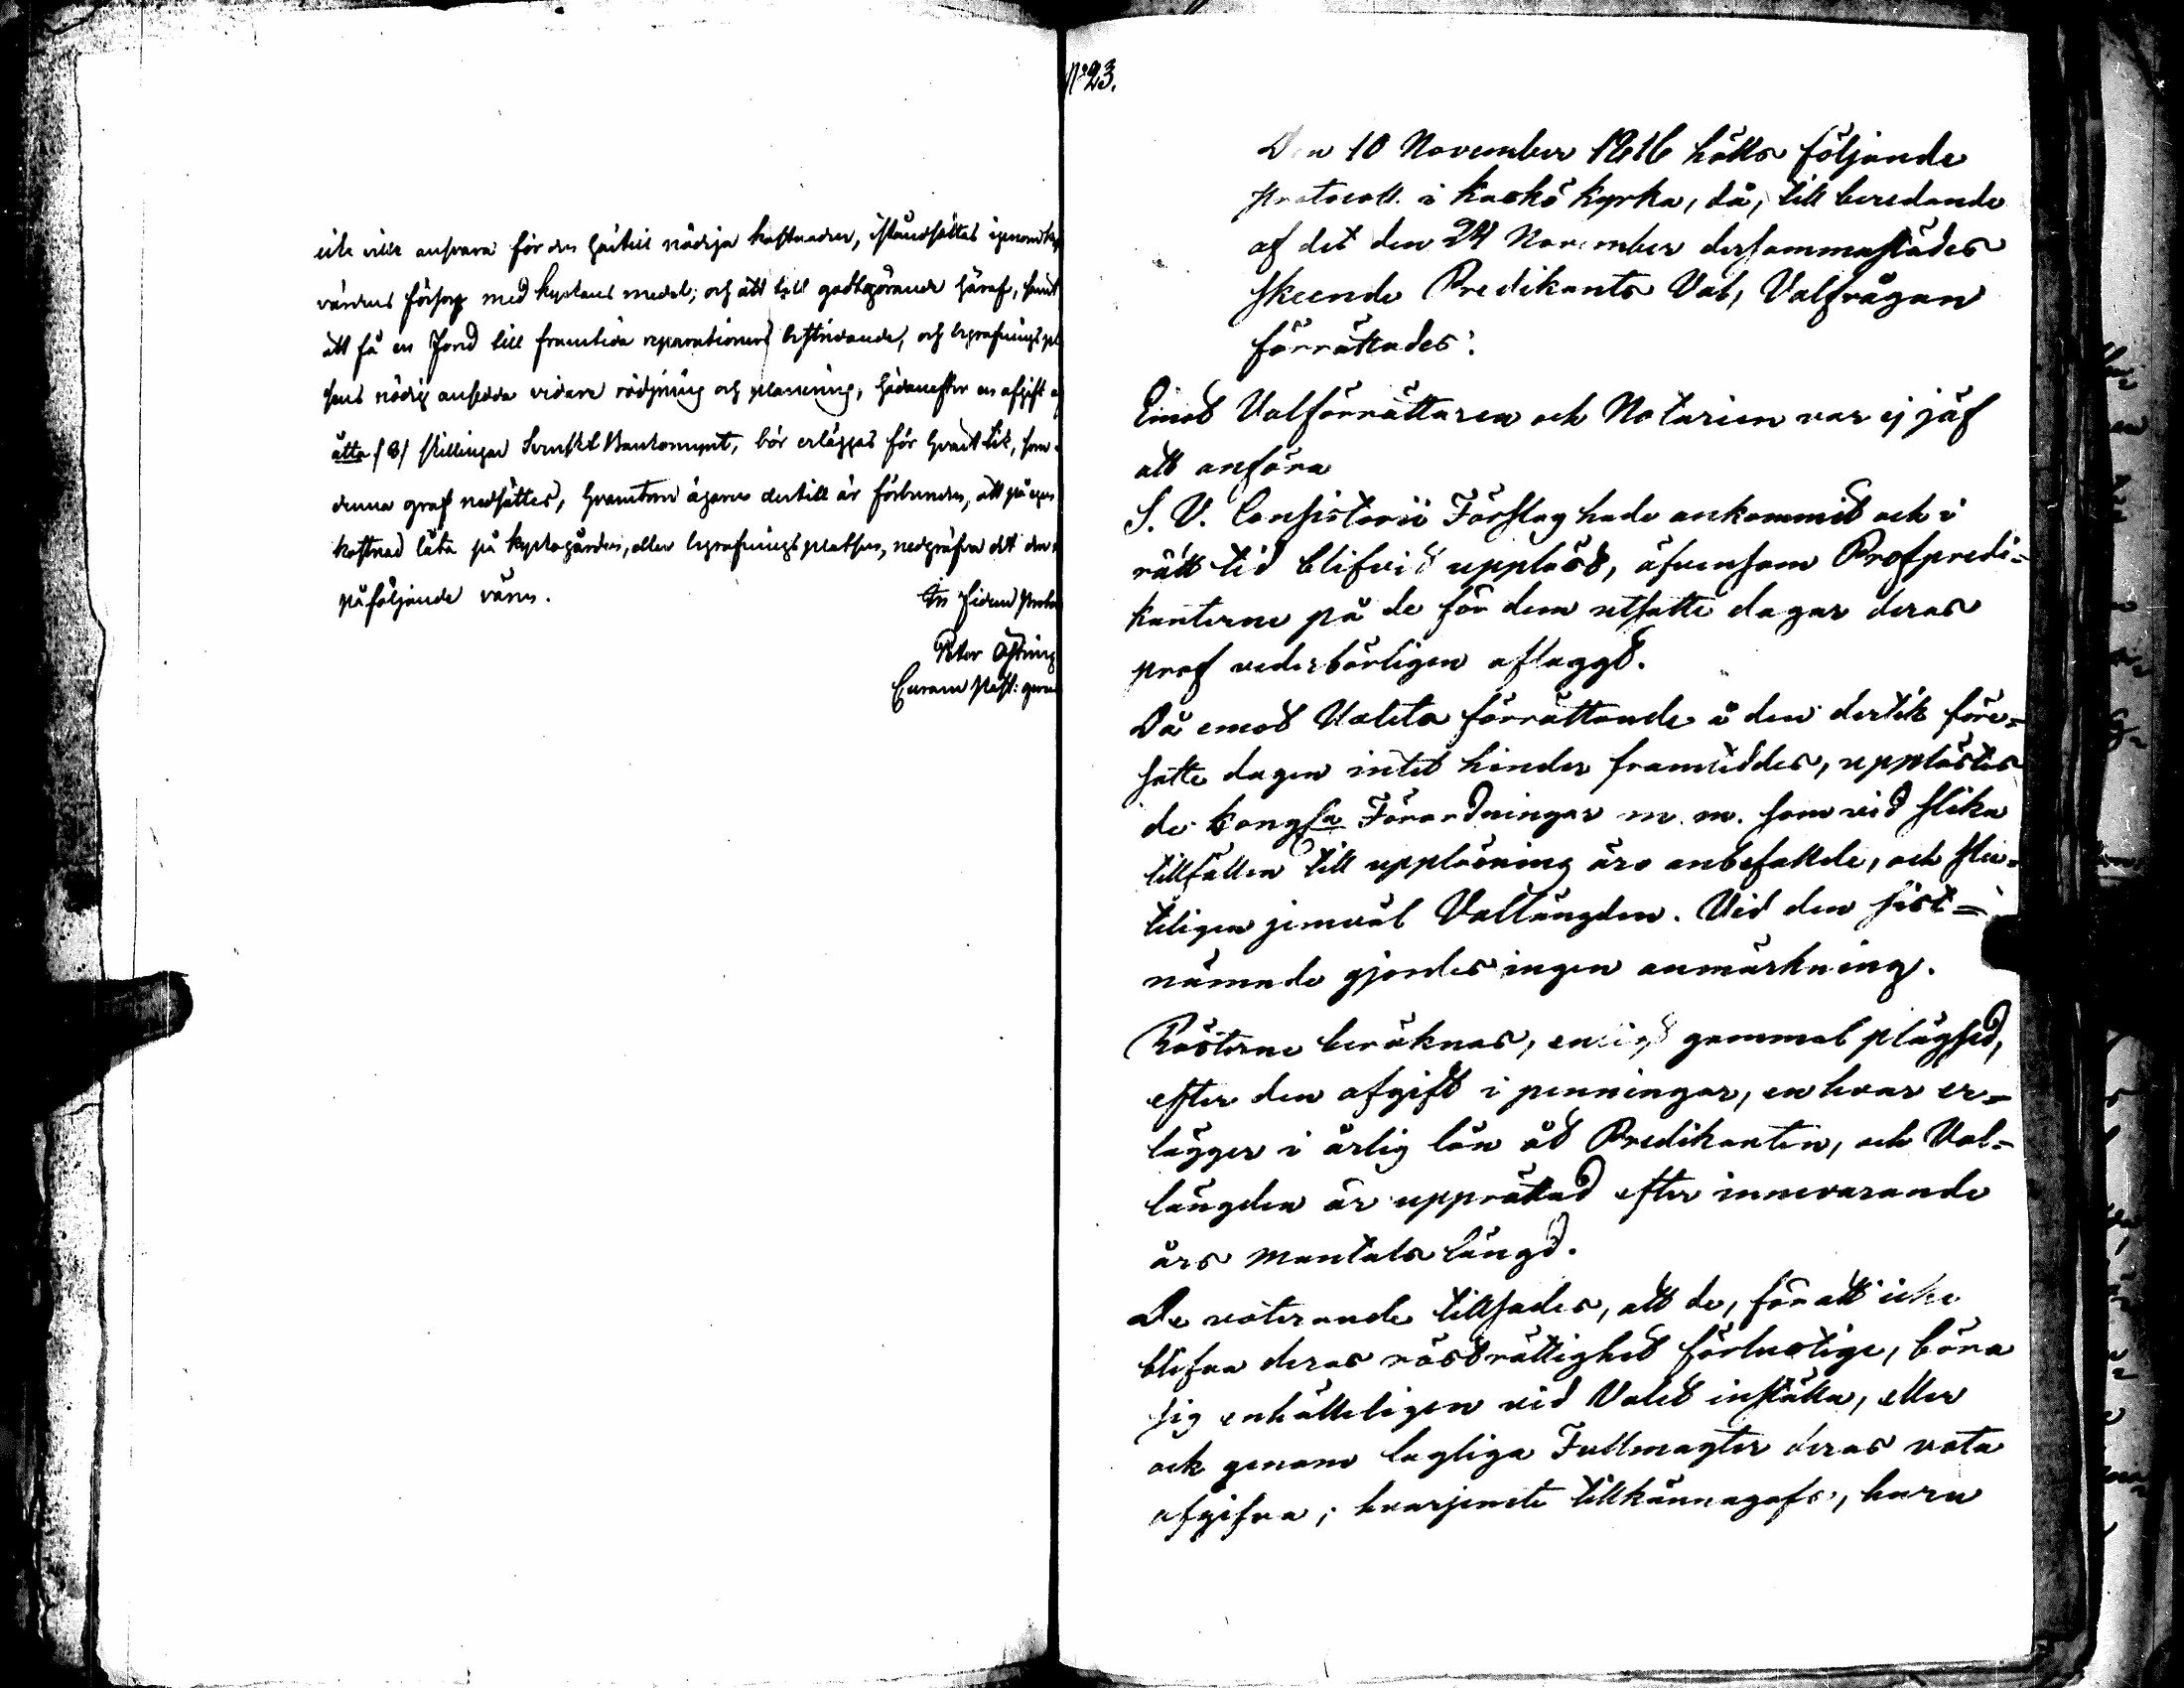 icke ville ansvara för den härtill nödiga kostnaden, iståndsättas igenom
värdens försorg med kyrkans medel; och att till godtgörande häraf, samt
att få en Fond till framtida reparationers bestridande, och begrafningspl
sens nödig ansedda vidare rödjning och planering, hädanefter en afgift a
åtta (8) skillingar Svenskt Bankomynt, bör erläggas för hvart lik, som
denna graf nedsättes, hvarutom ägaren dertill är förbunden, att på egen
kostnad låta på kyrkogården, eller begrafningsplatsen, nedgräfva det den
påföljande våren.
In fidem
Peter
Curam Past: gerens
No 23.
Den 10 November 1816 hölts följande
Protocoll i Kaskö kyrka, då, till beredande
af det den 24 November dersammastädes
skeende Predikants Val, Valfrågan
förrättades:
Emot Valförrättaren och Notarien var ej jäf
att anföra
S. V. Consistorii Förslag hade ankommit och i
rätt tid blifvit uppläst, äfvensom Profpredi=
kanterne på de för dem utsatte dagar deras
prof vederbörligen aflaggt.
Då emot Valets förrättande å den dertill före=
satte dagen intet hinder framteddes, upplästes
de Kongla Förordningar m. m. som vid slika
tillfällen till uppläsning äro anbefallde, och slu=
teligen jemväl Vallängden. Vid den sist=
nämnde gjordes ingen anmärkning.
Rösterne beräknas, enligt gammal plägsed,
efter den afgift i penningar, en hvar er=
lägger i årlig lön åt Predikanten, och Val=
längden är upprättad efter innevarande
års Mantals längd.
De voterande tillsades, att de, för att icke
blifva deras röst rättighet förlustige, böra
sig enhälleligen vid Valet inställa, eller
ock genom lagliga Fullmagter deras vota
afgifva; hvarjemte tillkännagafs, huru